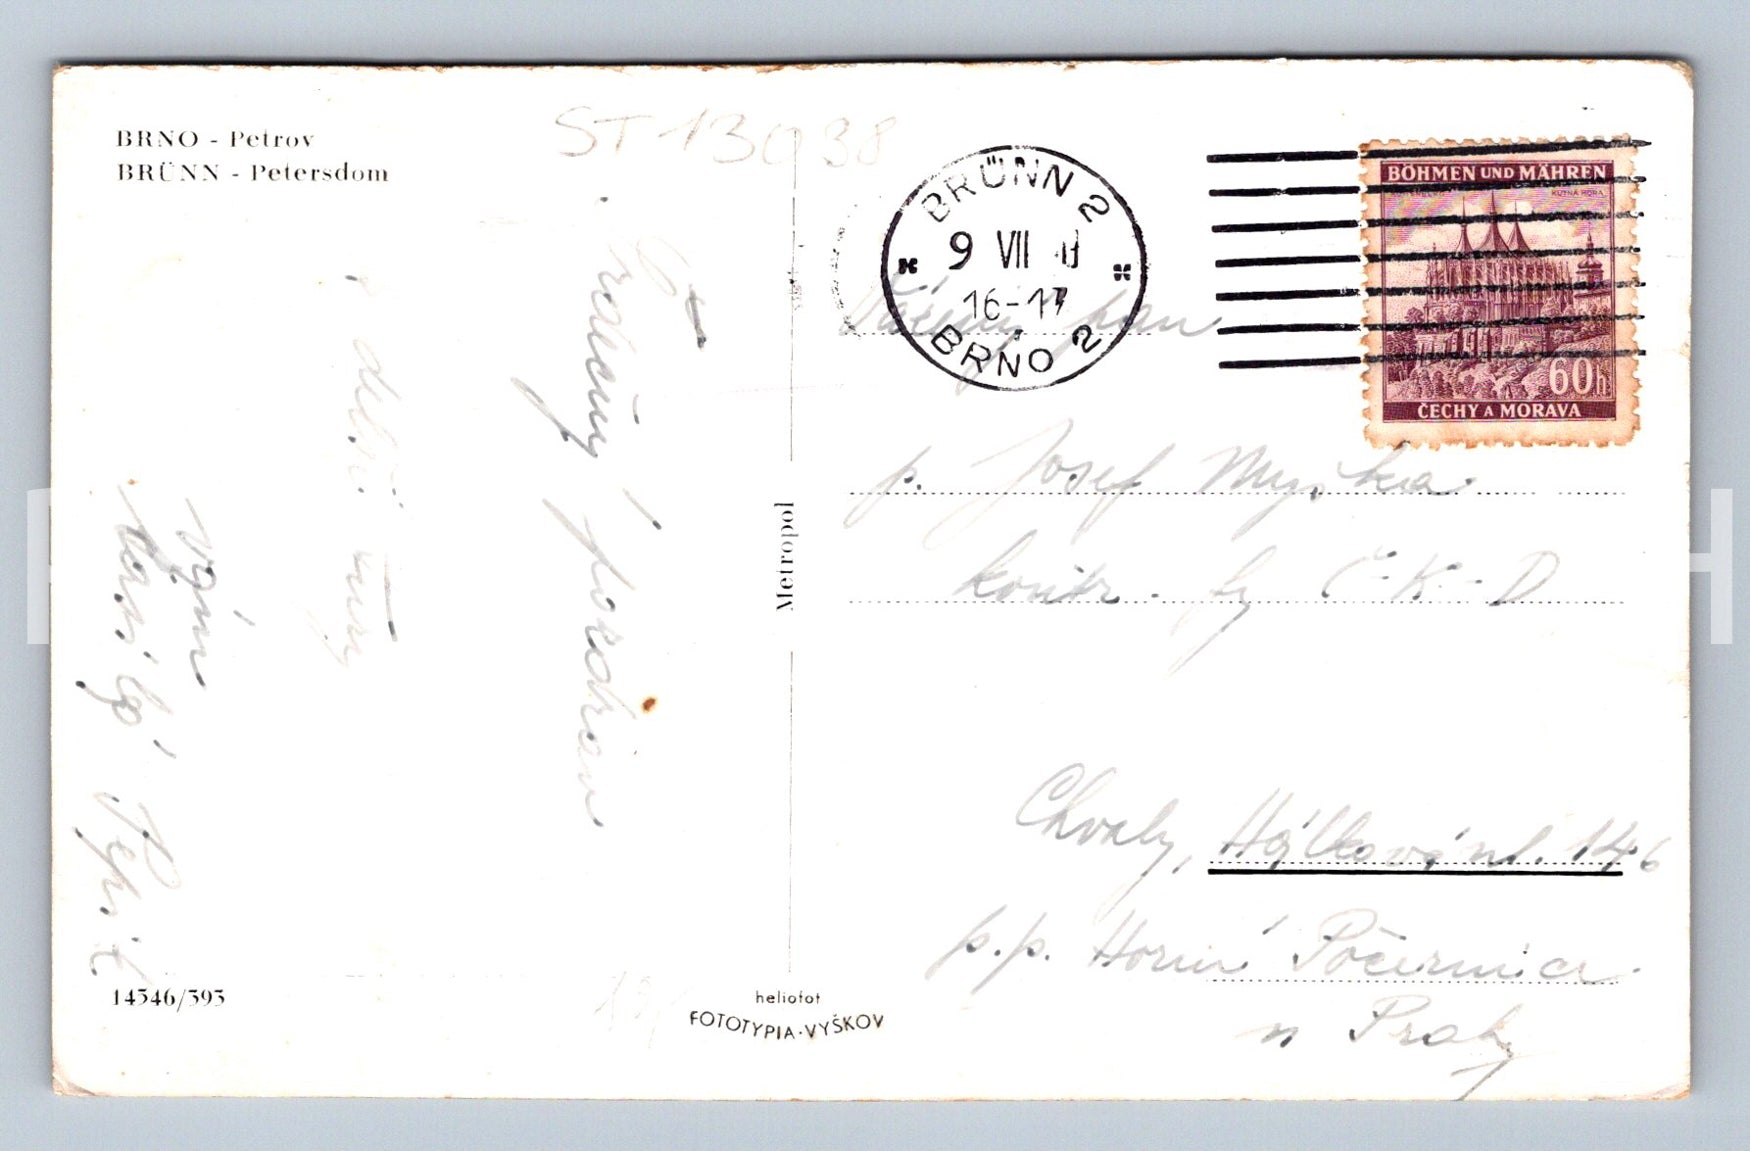 BRNO - Petrov
BRÜNN - Petersdom
ST 13038
BRÜNN 2
9 VII
16-17
BRNO 2
BÖHMEN UND MÄHREN
KUTNÁ HORA
60h
ČECHY A MORAVA
Vážený pan
p. Josef Myška
kontr. fy Č-K-D
Chvaly, Hálkova ul. 146
p.p. Horní Počernice
u Prahy
srdečný pozdrav
vám
Pepík
Metropol
14346/393
heliofot
FOTOTYPIA-VYŠKOV